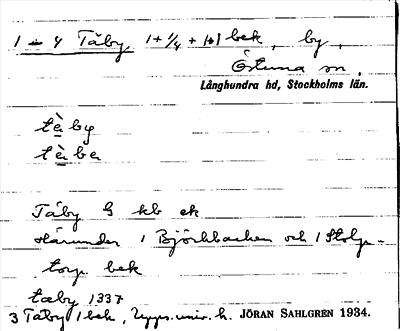 1 – 4 Täby 1 + 1/4 + 1 + 1 bek, by,
Östuna sn.
Långhundra hd, Stockholms län.
tè by
tè be
Täby G kb ek
Härunder 1 Björkbacken och 1 Stolp-
torp bek
tæby 1337
3 Täby 1 bek, Upps. univ. h. JÖRAN SAHLGREN 1934.